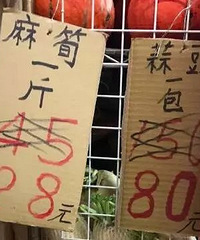 麻筍
一斤
45
98元
蒜豆
一包
150
80元